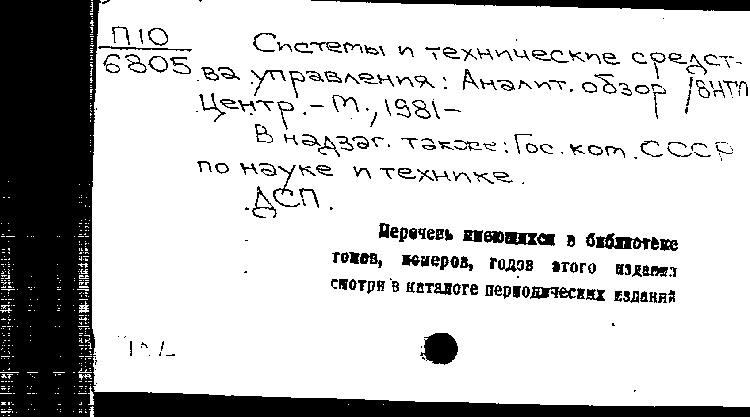 П10
6805
Системы и технические средст-
ва управления: Аналит. обзор /ВНТИ
Центр. - М., 1981-
В надзаг. также: Гос. ком. СССР
по науке и технике.
ДСП.
Перечень имеющихся в библиотеке
томов, номеров, годов этого издания
смотри в каталоге периодических изданий